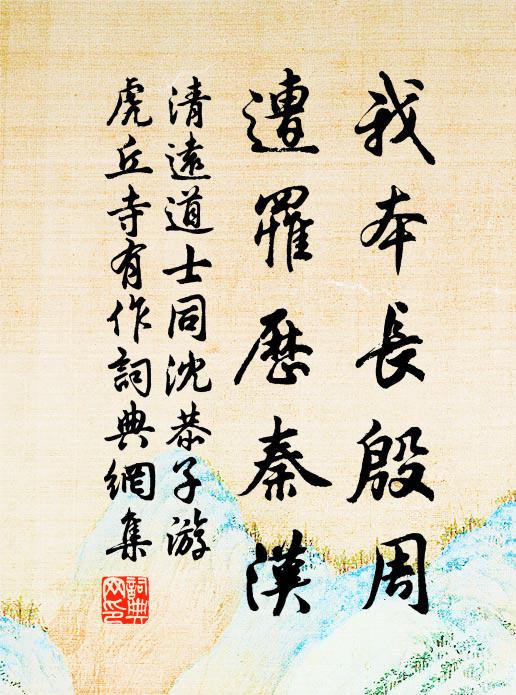 我本長殷周
遭罹歷秦漢
清遠道士同沈恭子游
虎丘寺有作詞典網集
詞典網印